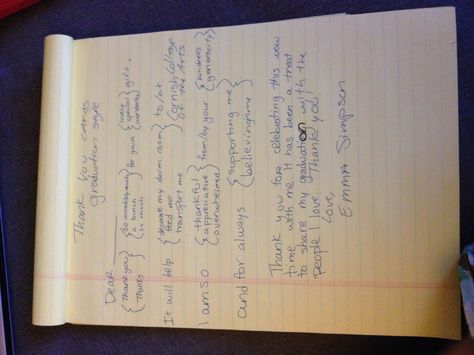 Thank you cards
graduation style
Dear
{Thank you} {so immensely much} for your {lovely} gift.
{Thanks} {a bunch} {special}
{so much} {wonderful}
It will help {decorate my dorm room} to/at
{feed me} {Cornish College
{transport me} of the Arts
I am so {thankful} from/by your {kindness
{appreciative} {generosity}
{overwhelmed}
and for always {supporting me}
{believing in me}
Thank you for celebrating this new
time with me. It has been a treat
to share my graduation with the
people I love. Thank you!
Love,
Emma Simpson